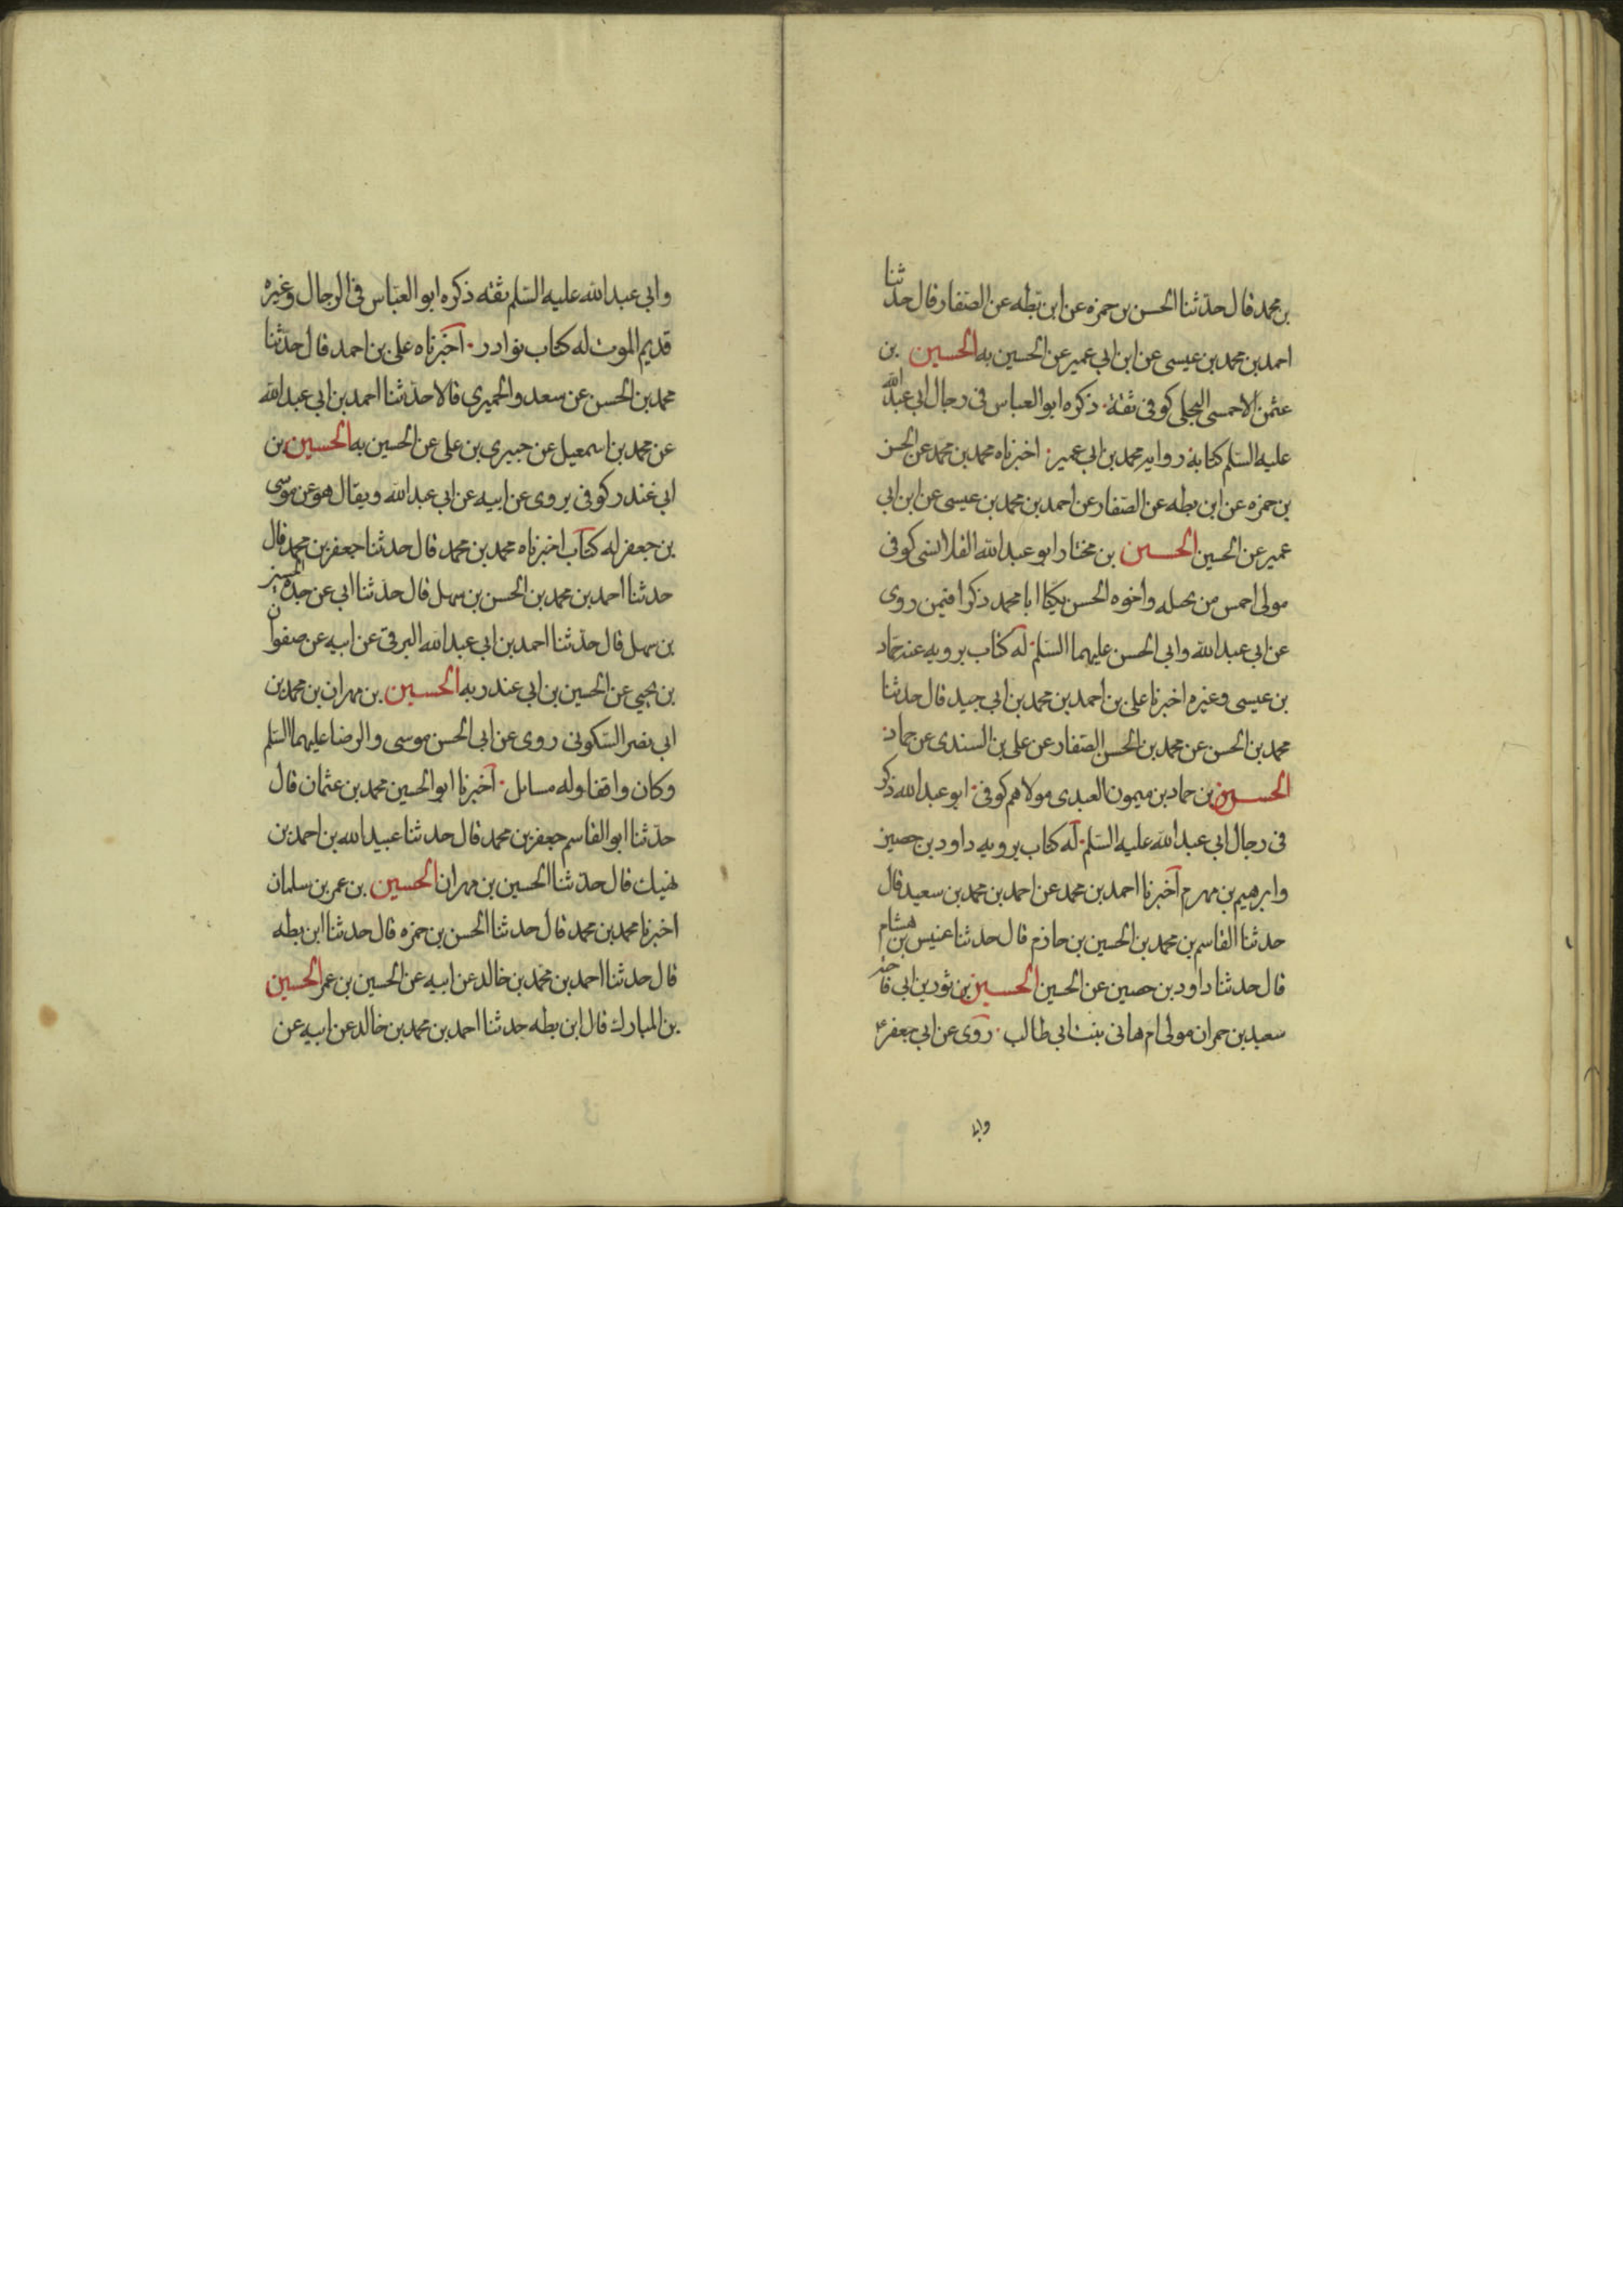 بن محمد قال حدثنا الحسن بن حمزه عن ابن بطه عن الصفار قال حدثنا
احمد بن محمد بن عيسى عن ابن ابي عمير عن الحسين به الحسين بن
عثمن الاحمسي البجلي كوفي ثقة ذكره ابو العباس في رجال ابي عبد الله
عليه السلم كتابه روايه محمد بن ابي عمير اخبرناه محمد بن محمد عن الحسن
بن حمزه عن ابن بطه عن الصفار عن احمد بن محمد بن عيسى عن ابن ابي
عمير عن الحسين الحسين بن مختار ابو عبد الله القلانسي كوفي
مولى احمس من بجيله واخوه الحسن يكنا ابا محمد ذكرا فيمن روى
عن ابي عبد الله وابي الحسن عليهما السلم له كتاب يرويه عنه حماد
بن عيسى وغيره اخبرنا علي بن احمد بن محمد بن ابي جيد قال حدثنا
محمد بن الحسن عن محمد بن الحسن الصفار عن علي بن السندي عن حماد
الحسين بن حماد بن ميمون العبدي مولاهم كوفي ابو عبد الله ذكر
في رجال ابي عبد الله عليه السلم له كتاب يرويه داود بن حصين
وابرهيم بن مهرم اخبرنا احمد بن محمد عن احمد بن محمد بن سعيد قال
حدثنا القاسم بن محمد بن الحسين بن حازم قال حدثنا عبيس بن هشام
قال حدثنا داود بن حصين عن الحسين الحسين بن ثور بن ابي فاخته
سعيد بن حمران مولى ام هاني بنت ابي طالب روى عن ابي جعفر ع
وابي
وابي عبد الله عليه السلم ثقه ذكره ابو العباس في الرجال وغيره
قديم الموت له كتاب نوادر اخبرناه علي بن احمد قال حدثنا
محمد بن الحسن عن سعد والحميري قالا حدثنا احمد بن ابي عبد الله
عن محمد بن اسمعيل عن خيبري بن علي عن الحسين به الحسين بن
ابي غندر كوفي يروى عن ابيه عن ابي عبد الله ويقال هو عن موسى
بن جعفر له كتاب اخبرناه محمد بن محمد قال حدثنا جعفر بن محمد قال
حدثنا احمد بن محمد بن الحسن بن سهل قال حدثنا ابي عن جده الحسن
بن سهل قال حدثنا احمد بن ابي عبد الله البرقي عن ابيه عن صفوان
بن يحيى عن الحسين بن ابي غندر به الحسين بن مهران بن محمد بن
ابي نصر السكوني روى عن ابي الحسن موسى والرضا عليهما السلم
وكان واقفا وله مسايل اخبرنا ابو الحسين محمد بن عثمان قال
حدثنا ابو القاسم جعفر بن محمد قال حدثنا عبيد الله بن احمد بن
نهيك قال حدثنا الحسين بن مهران الحسين بن عمر بن سلمان
اخبرنا محمد بن محمد قال حدثنا الحسن بن حمزه قال حدثنا ابن بطه
قال حدثنا احمد بن محمد بن خالد عن ابيه عن الحسين بن عمر الحسين
بن المبارك قال ابن بطه حدثنا احمد بن محمد بن خالد عن ابيه عن